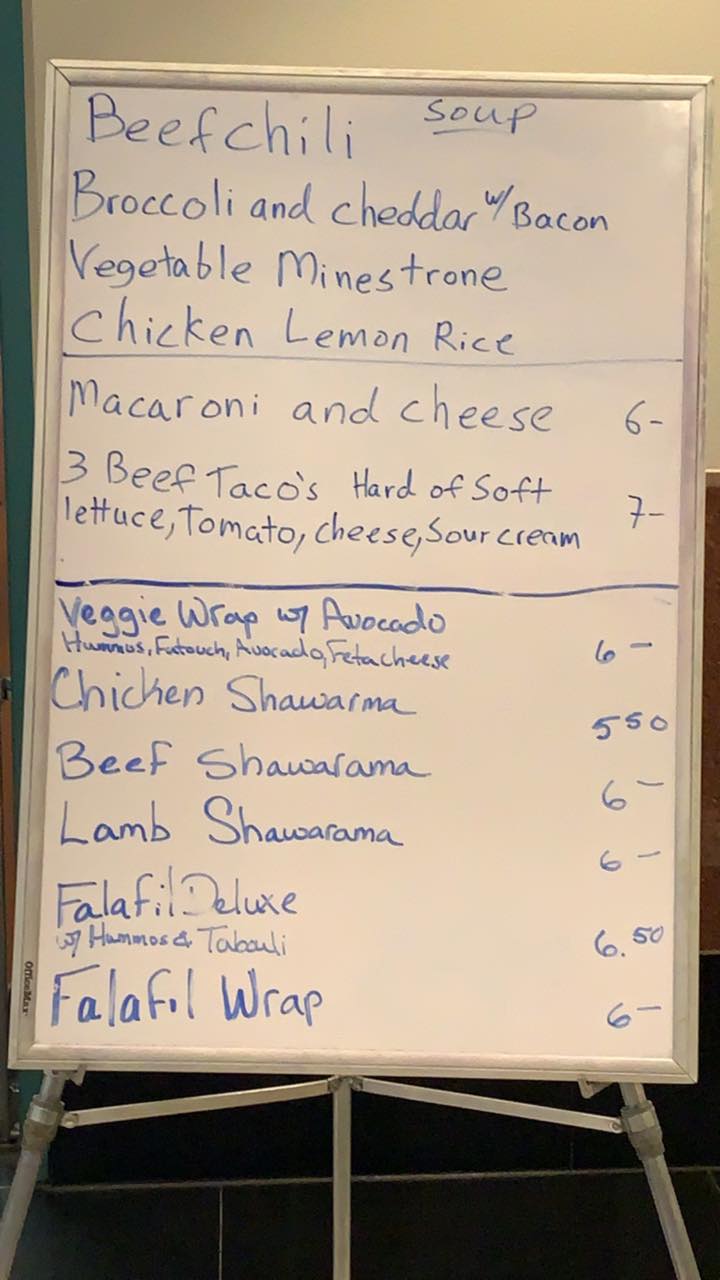 Beef chili soup
Broccoli and cheddar w/ Bacon
Vegetable Minestrone
Chicken Lemon Rice
Macaroni and cheese 6-
3 Beef Taco's Hard of Soft
lettuce, Tomato, cheese, Sour cream 7-
Veggie Wrap w/ Avocado
Hummus, Fatouch, Avocado, Feta cheese 6-
Chicken Shawarma 5 50
Beef Shawarama 6-
Lamb Shawarama 6-
Falafil Deluxe
w/ Hummos & Tabouli 6.50
Falafil Wrap 6-
OfficeMax